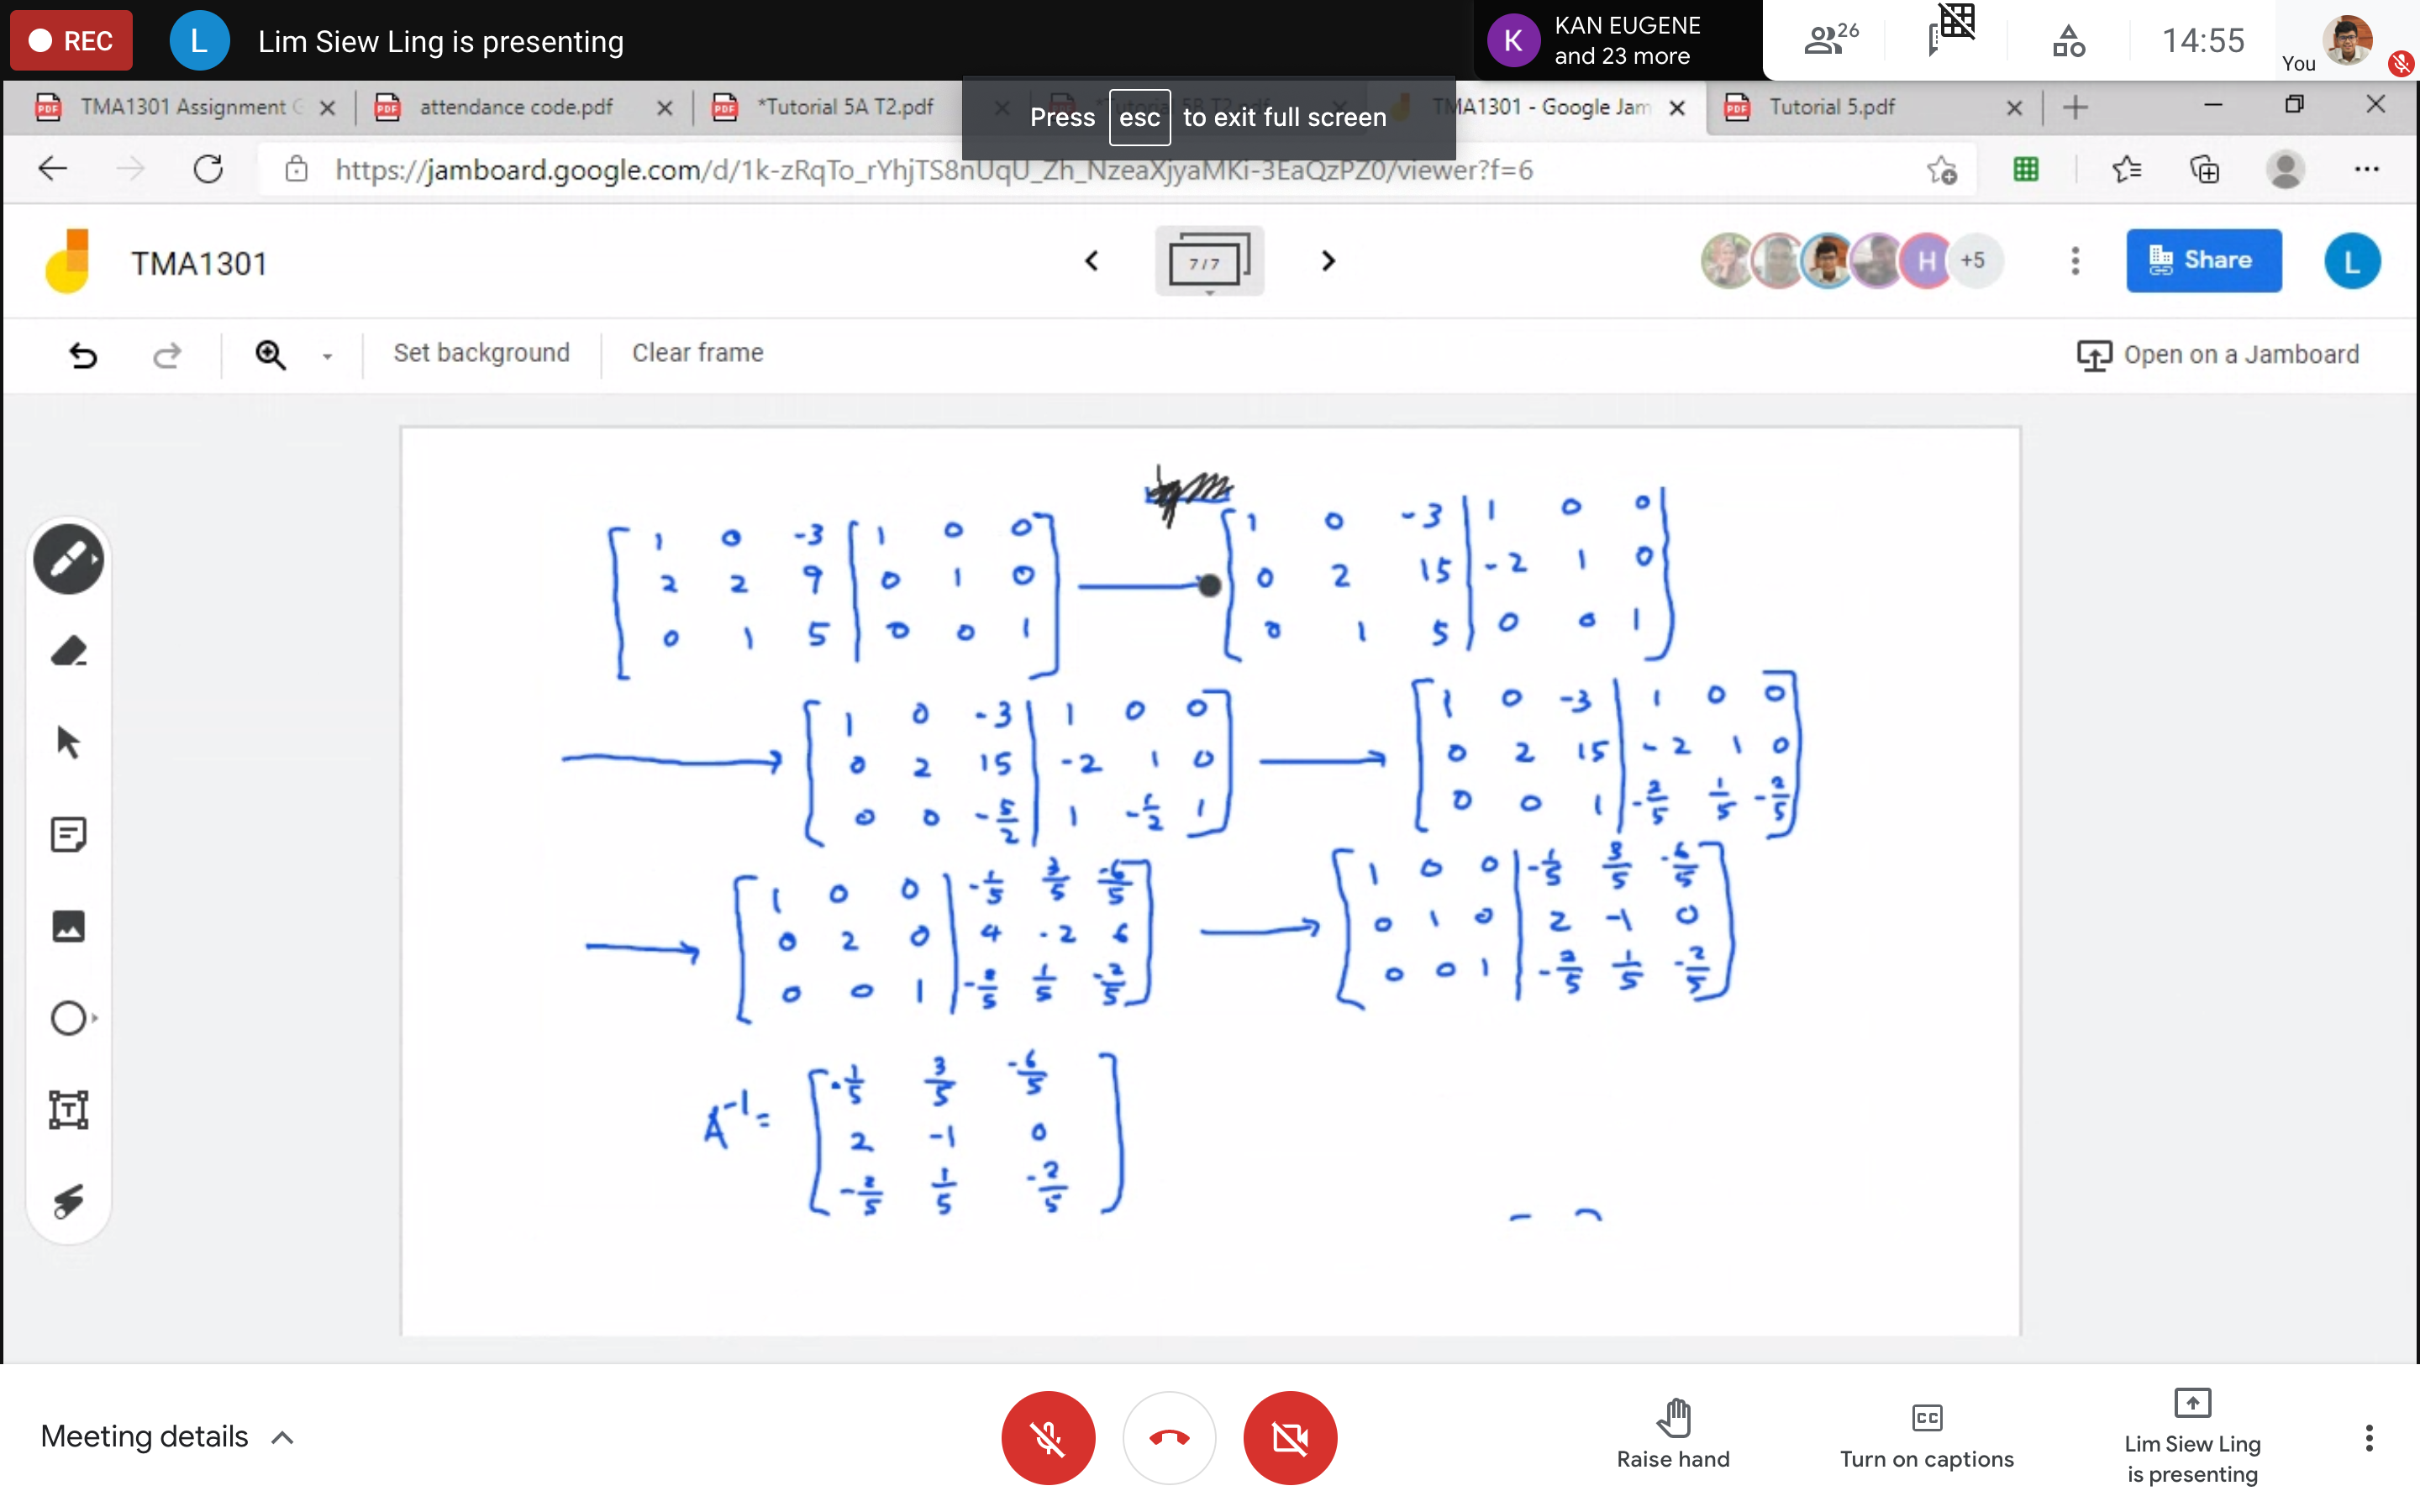 REC
L
Lim Siew Ling is presenting
K
KAN EUGENE
and 23 more
26
14:55
You
TMA1301 Assignment
attendance code.pdf
*Tutorial 5A T2.pdf
TMA1301 - Google Jam
Tutorial 5.pdf
Press esc to exit full screen
https://jamboard.google.com/d/1k-zRqTo_rYhjTS8nUqU_Zh_NzeaXjyaMKi-3EaQzPZ0/viewer?f=6
TMA1301
7/7
H
+5
Share
L
Set background
Clear frame
Open on a Jamboard
1 0 -3 | 1 0 0
2 2 9 | 0 1 0
0 1 5 | 0 0 1
1 0 -3 | 1 0 0
0 2 15 | -2 1 0
0 1 5 | 0 0 1
1 0 -3 | 1 0 0
0 2 15 | -2 1 0
0 0 -5/2 | 1 -1/2 1
1 0 -3 | 1 0 0
0 2 15 | -2 1 0
0 0 1 | -2/5 1/5 -2/5
1 0 0 | -1/5 3/5 -6/5
0 2 0 | 4 -2 6
0 0 1 | -2/5 1/5 -2/5
1 0 0 | -1/5 3/5 -6/5
0 1 0 | 2 -1 0
0 0 1 | -2/5 1/5 -2/5
A⁻¹=
-1/5 3/5 -6/5
2 -1 0
-2/5 1/5 -2/5
Meeting details
Raise hand
CC
Turn on captions
Lim Siew Ling
is presenting